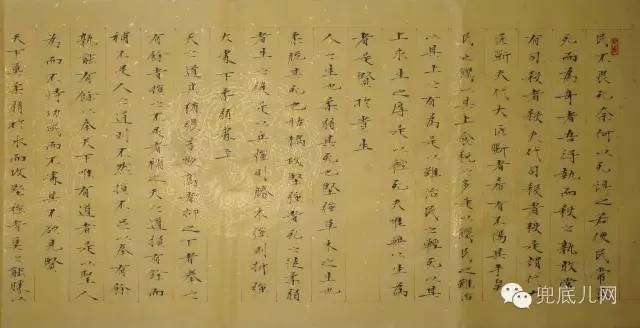 民不畏死奈何以死懼之若使民常畏
死而為奇者吾得執而殺之孰敢常
有司殺者殺夫代司殺者殺是謂代大
匠斲夫代大匠斲者希有不傷其手矣
民之饑以其上食稅之多是以饑民之難治
以其上之有為是以難治民之輕死以其
上求生之厚是以輕死夫唯無以生為
者是賢於貴生
人之生也柔弱其死也堅強草木之生也
柔脆其死也枯槁故堅強者死之徒柔弱
者生之徒是以兵強則不勝木強則折強
大處下柔弱處上
天之道其猶張弓歟高者抑之下者舉之
有餘者損之不足者補之天之道損有餘而
補不足人之道則不然損不足以奉有餘
孰能有餘以奉天下唯有道者是以聖人
為而不恃功成而不處其不欲見賢
天下莫柔弱於水而攻堅強者莫之能勝以
兜底儿网